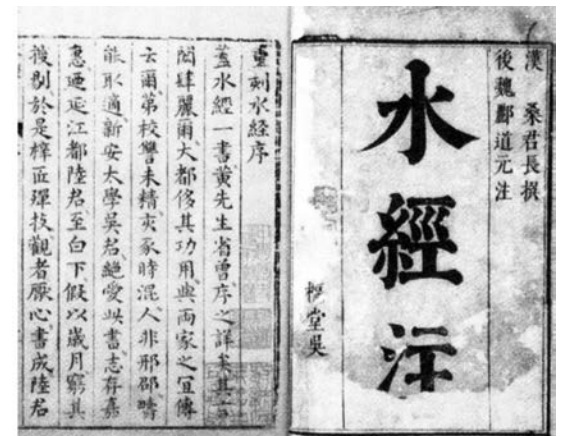 漢 桑君長撰
後魏酈道元注
水經注
堂吳
重刻水經序
蓋水經一書黄先生省曾序之詳矣其言
閎肆麗爾大都侈其功用與兩家之宜傳
云爾第校讐未精亥豕時混人非邢邵疇
能取適新安大學吳君絶愛此書志存嘉
惠廼延江都陸君至白下假以歲月窮其
搜剔於是梓匠殫技觀者厭心書成陸君